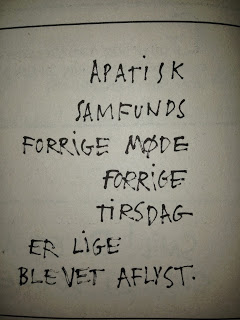 APATISK
SAMFUNDS
FORRIGE MØDE
FORRIGE
TIRSDAG
ER LIGE
BLEVET AFLYST.